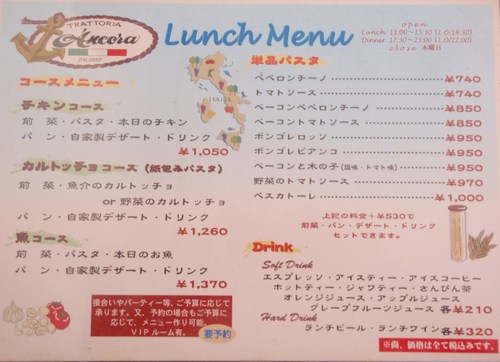 TRATTORIA
Ancora
Lunch Menu
open
Lunch 11:00~15:30 (L.O/14:30)
Dinner 17:30~23:00 (L.O/22:00)
close 木曜日
コースメニュー
チキンコース
前菜・パスタ・本日のチキン
パン・自家製デザート・ドリンク
¥1,050
カルトッチョコース (紙包みパスタ)
前菜・魚介のカルトッチョ
or 野菜のカルトッチョ
パン・自家製デザート・ドリンク
¥1,260
魚コース
前菜・パスタ・本日のお魚
パン・自家製デザート・ドリンク
¥1,370
接合いやパーティー等、ご予算に応じて
承ります。又、予約の場合もご予算に
応じて、メニュー作り可能。
VIPルーム有。
要予約
単品パスタ
ペペロンチーノ ¥740
トマトソース ¥740
ベーコンペペロンチーノ ¥850
ベーコントマトソース ¥850
ボンゴレロッソ ¥950
ボンゴレビアンコ ¥950
ベーコンと木の子(塩味・トマト味) ¥950
野菜のトマトソース ¥970
ペスカトーレ ¥1,000
上記の料金+¥530で
前菜・パン・デザート・ドリンク
セットできます。
Drink
Soft Drink
エスプレッソ・アイスティー・アイスコーヒー
ホットティー・ジャワティー・さんぴん茶
オレンジジュース・アップルジュース
グレープフルーツジュース 各¥210
Hard Drink
ランチビール・ランチワイン 各¥320
※尚、価格は全て税込みです。